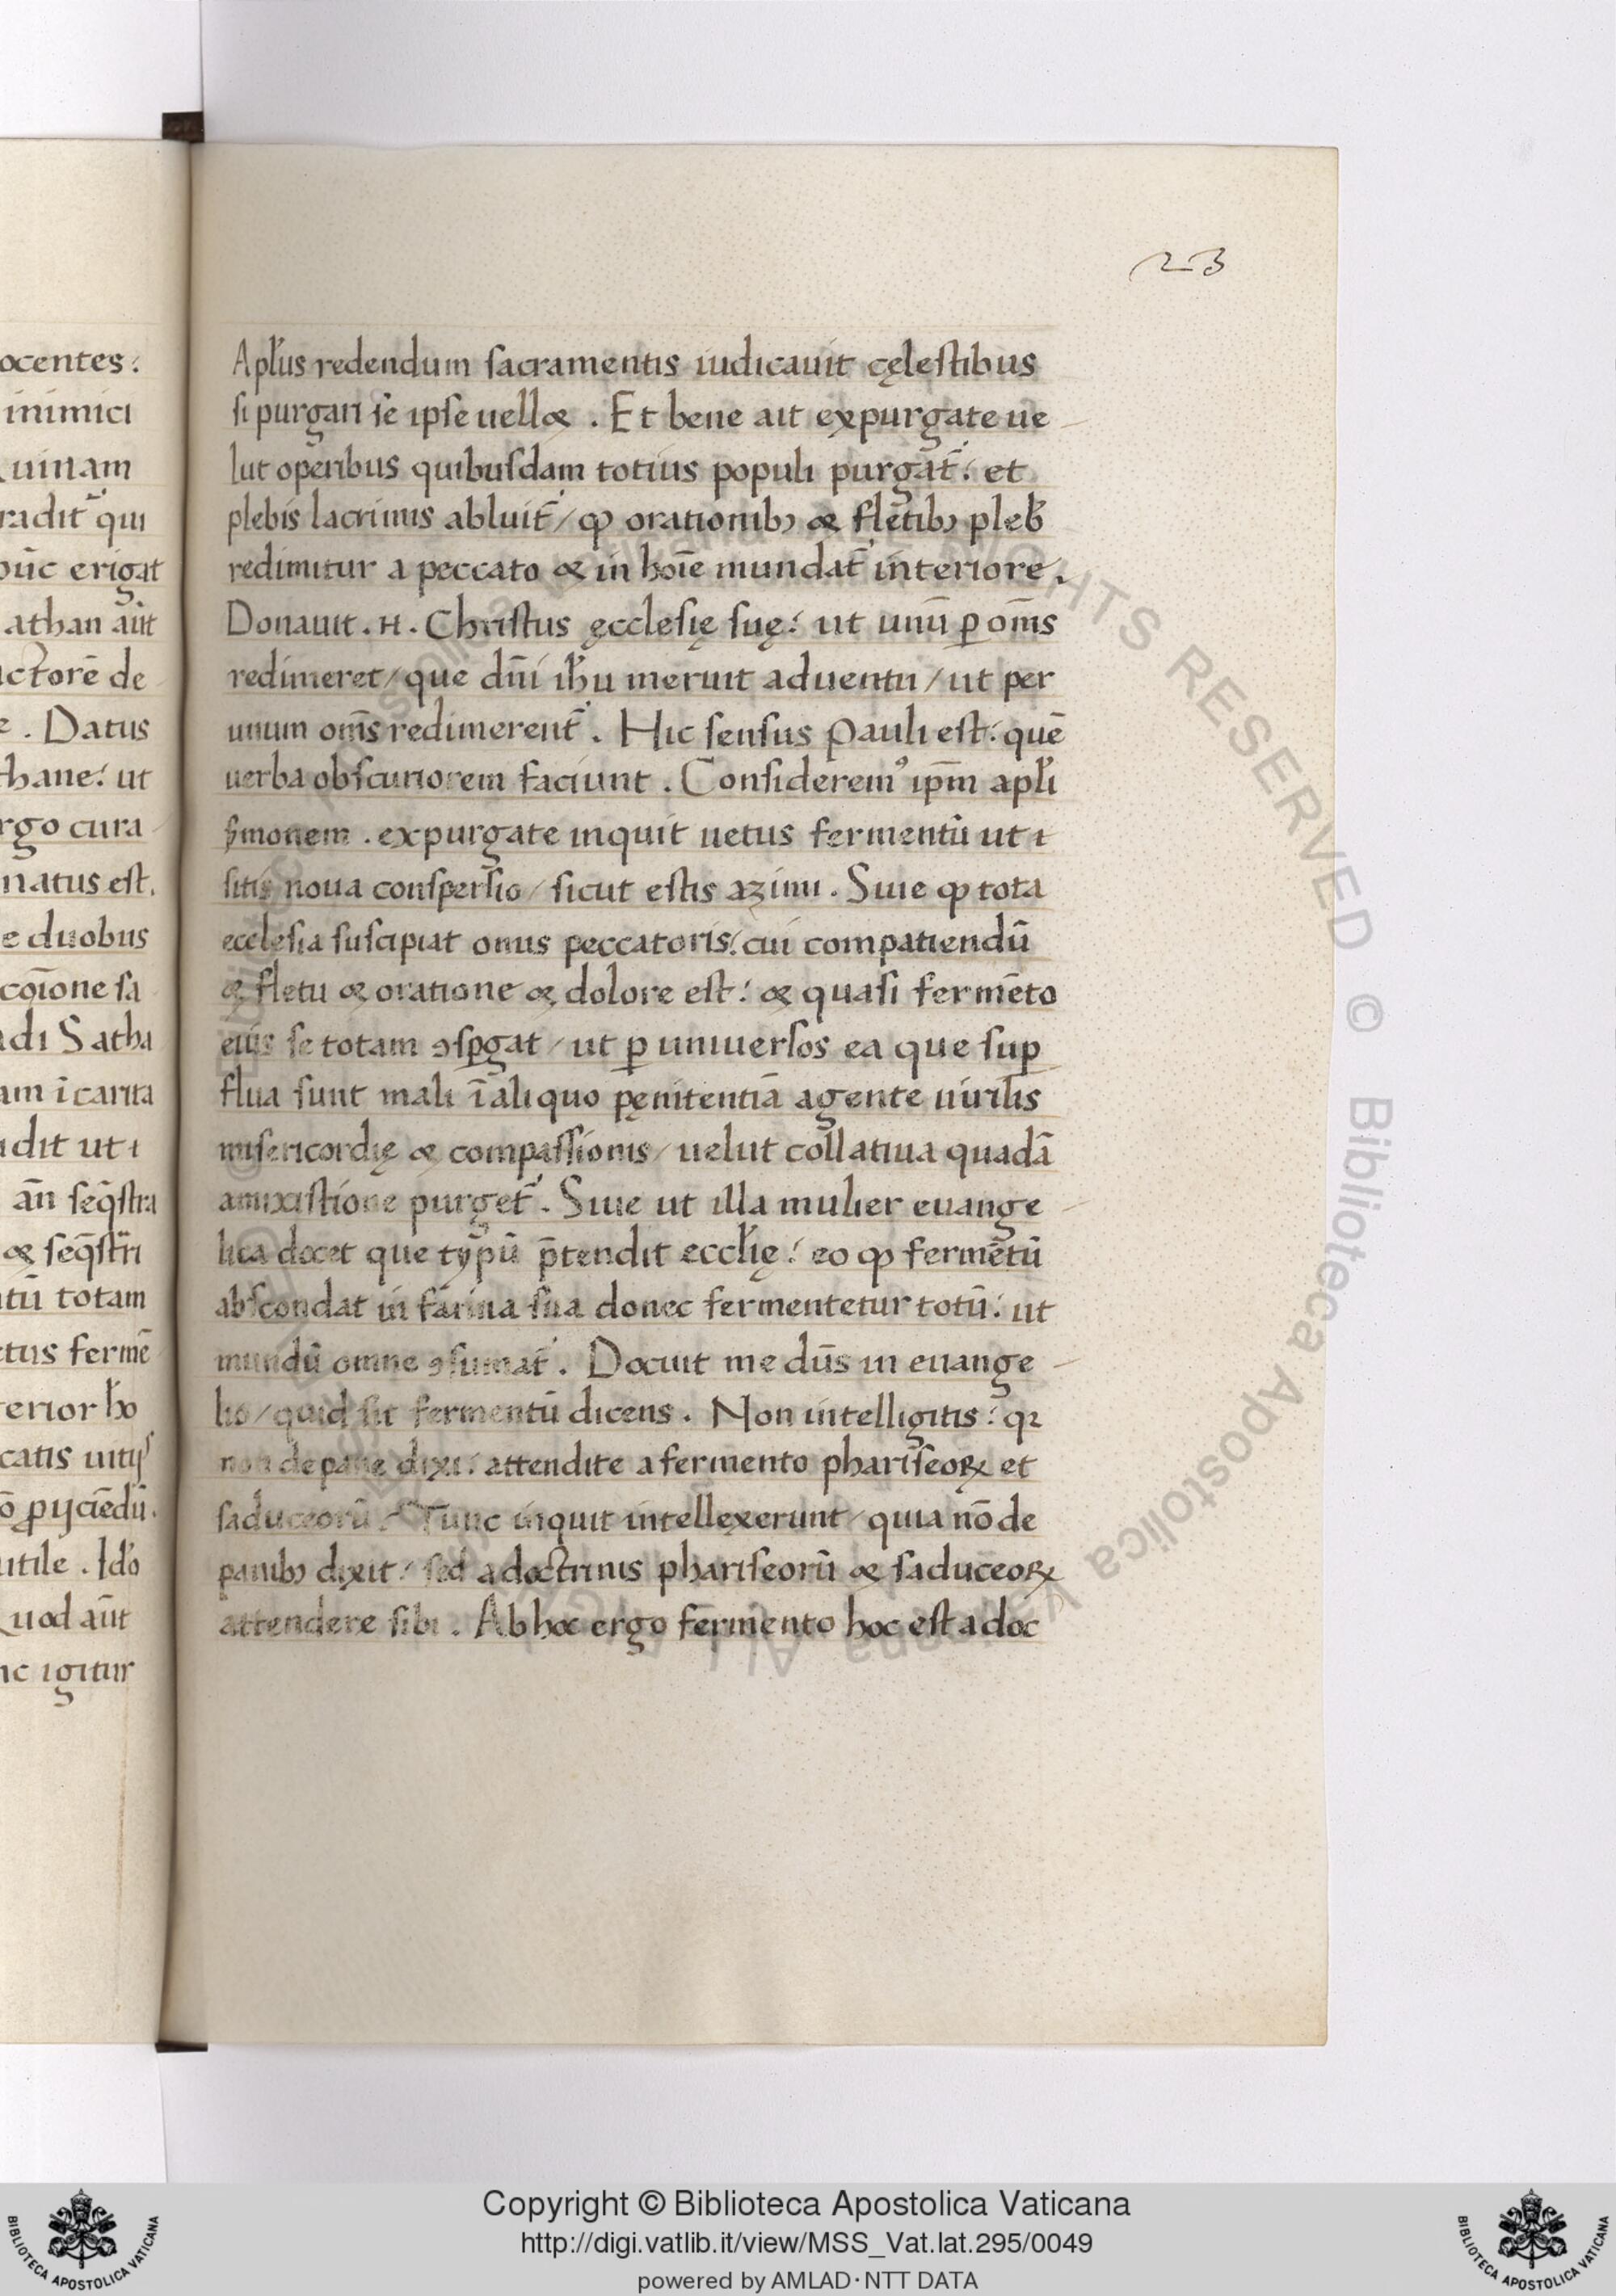 23
ocentes:
inimici
Quinam
radit̃ qui
hũc erigat
athan aũt
actorẽ de
e. Datus
thane: ut
rgo cura
natus est.
e duobus
coĩone sa
adi Satha
am ĩ carita
adit ut i
añ seq̃stra
& seq̃stri
tũ totam
ctus fermẽ
terior ho
catis uitijs
õ ꝓijciẽdũ.
utile. Ido
Quod aũt
nc igitur
Apl̃us redendum sacramentis iudicauit cęlestibus
si purgari se ipse uell&. Et bene ait expurgate ue
lut operibus quibusdam totius populi purgat̃: et
plebis lacrimis abluit̃/ ꝙ orationibꝫ & fletibꝫ pleb̃
redimitur a peccato & in hoĩe mundat̃ interiore.
Donauit .H. Christus ęcclesię suę: ut unũ ꝑ om̃s
redimeret/ que dñi ihũ meruit aduentũ/ ut per
unum om̃s redimerent̃. Hic sensus Pauli est: quẽ
uerba obscuriorem faciunt. Considerem⁹ ip̃m apl̃i
s̃monem. expurgate inquit uetus fermentũ ut i
sitis noua conspersio/ sicut estis azimi. Siue ꝙ tota
ecclesia suscipiat onus peccatoris: cui compatiendũ
& fletu & oratione & dolore est: & quasi fermẽto
eius se totam ꝯsꝑgat/ ut ꝑ uniuersos ea que suꝑ
flua sunt mali ĩ aliquo pęnitentiã agente uirilis
misericordię & compassionis/ uelut collatiua quadã
amixistione purget̃. Siue ut illa mulier euange
lica docet que typũ p̃tendit eccl̃ię: eo ꝙ fermẽtũ
abscondat in farina sua donec fermentetur totũ: ut
mundũ omne ꝯsumat̃. Docuit me dũs in euange
lio/ quid sit fermentũ dicens. Non intelligitis: qꝛ
non de pane dixi: attendite a fermento phariseoꝝ et
saduceorũ: Tunc inquit intellexerunt/ quia nõ de
panibꝫ dixit: sed a doctrinis phariseorũ & saduceoꝝ
attendere sibi. Ab hoc ergo fermento hoc est a doc
Copyright © Biblioteca Apostolica Vaticana
http://digi.vatlib.it/view/MSS_Vat.lat.295/0049
powered by AMLAD·NTT DATA